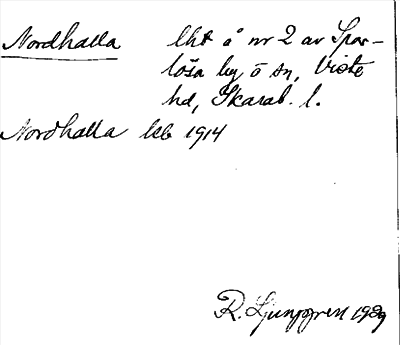 Nordhalla lht å nr 2 av Spar-
lösa by o sn, Viste
hd, Skarab. l.
Nordhalla 1914
R. Ljunggren 1929